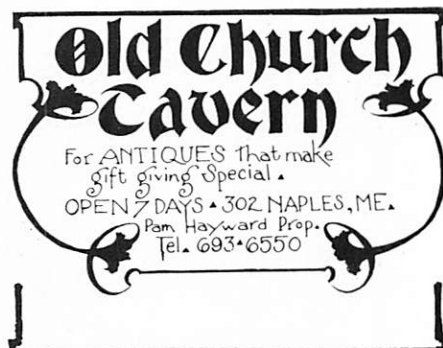 Old Church
Tavern
For ANTIQUES That make
gift giving Special.
OPEN 7 DAYS • 302 NAPLES, ME.
Pam Hayward Prop.
Tel. 693•6550